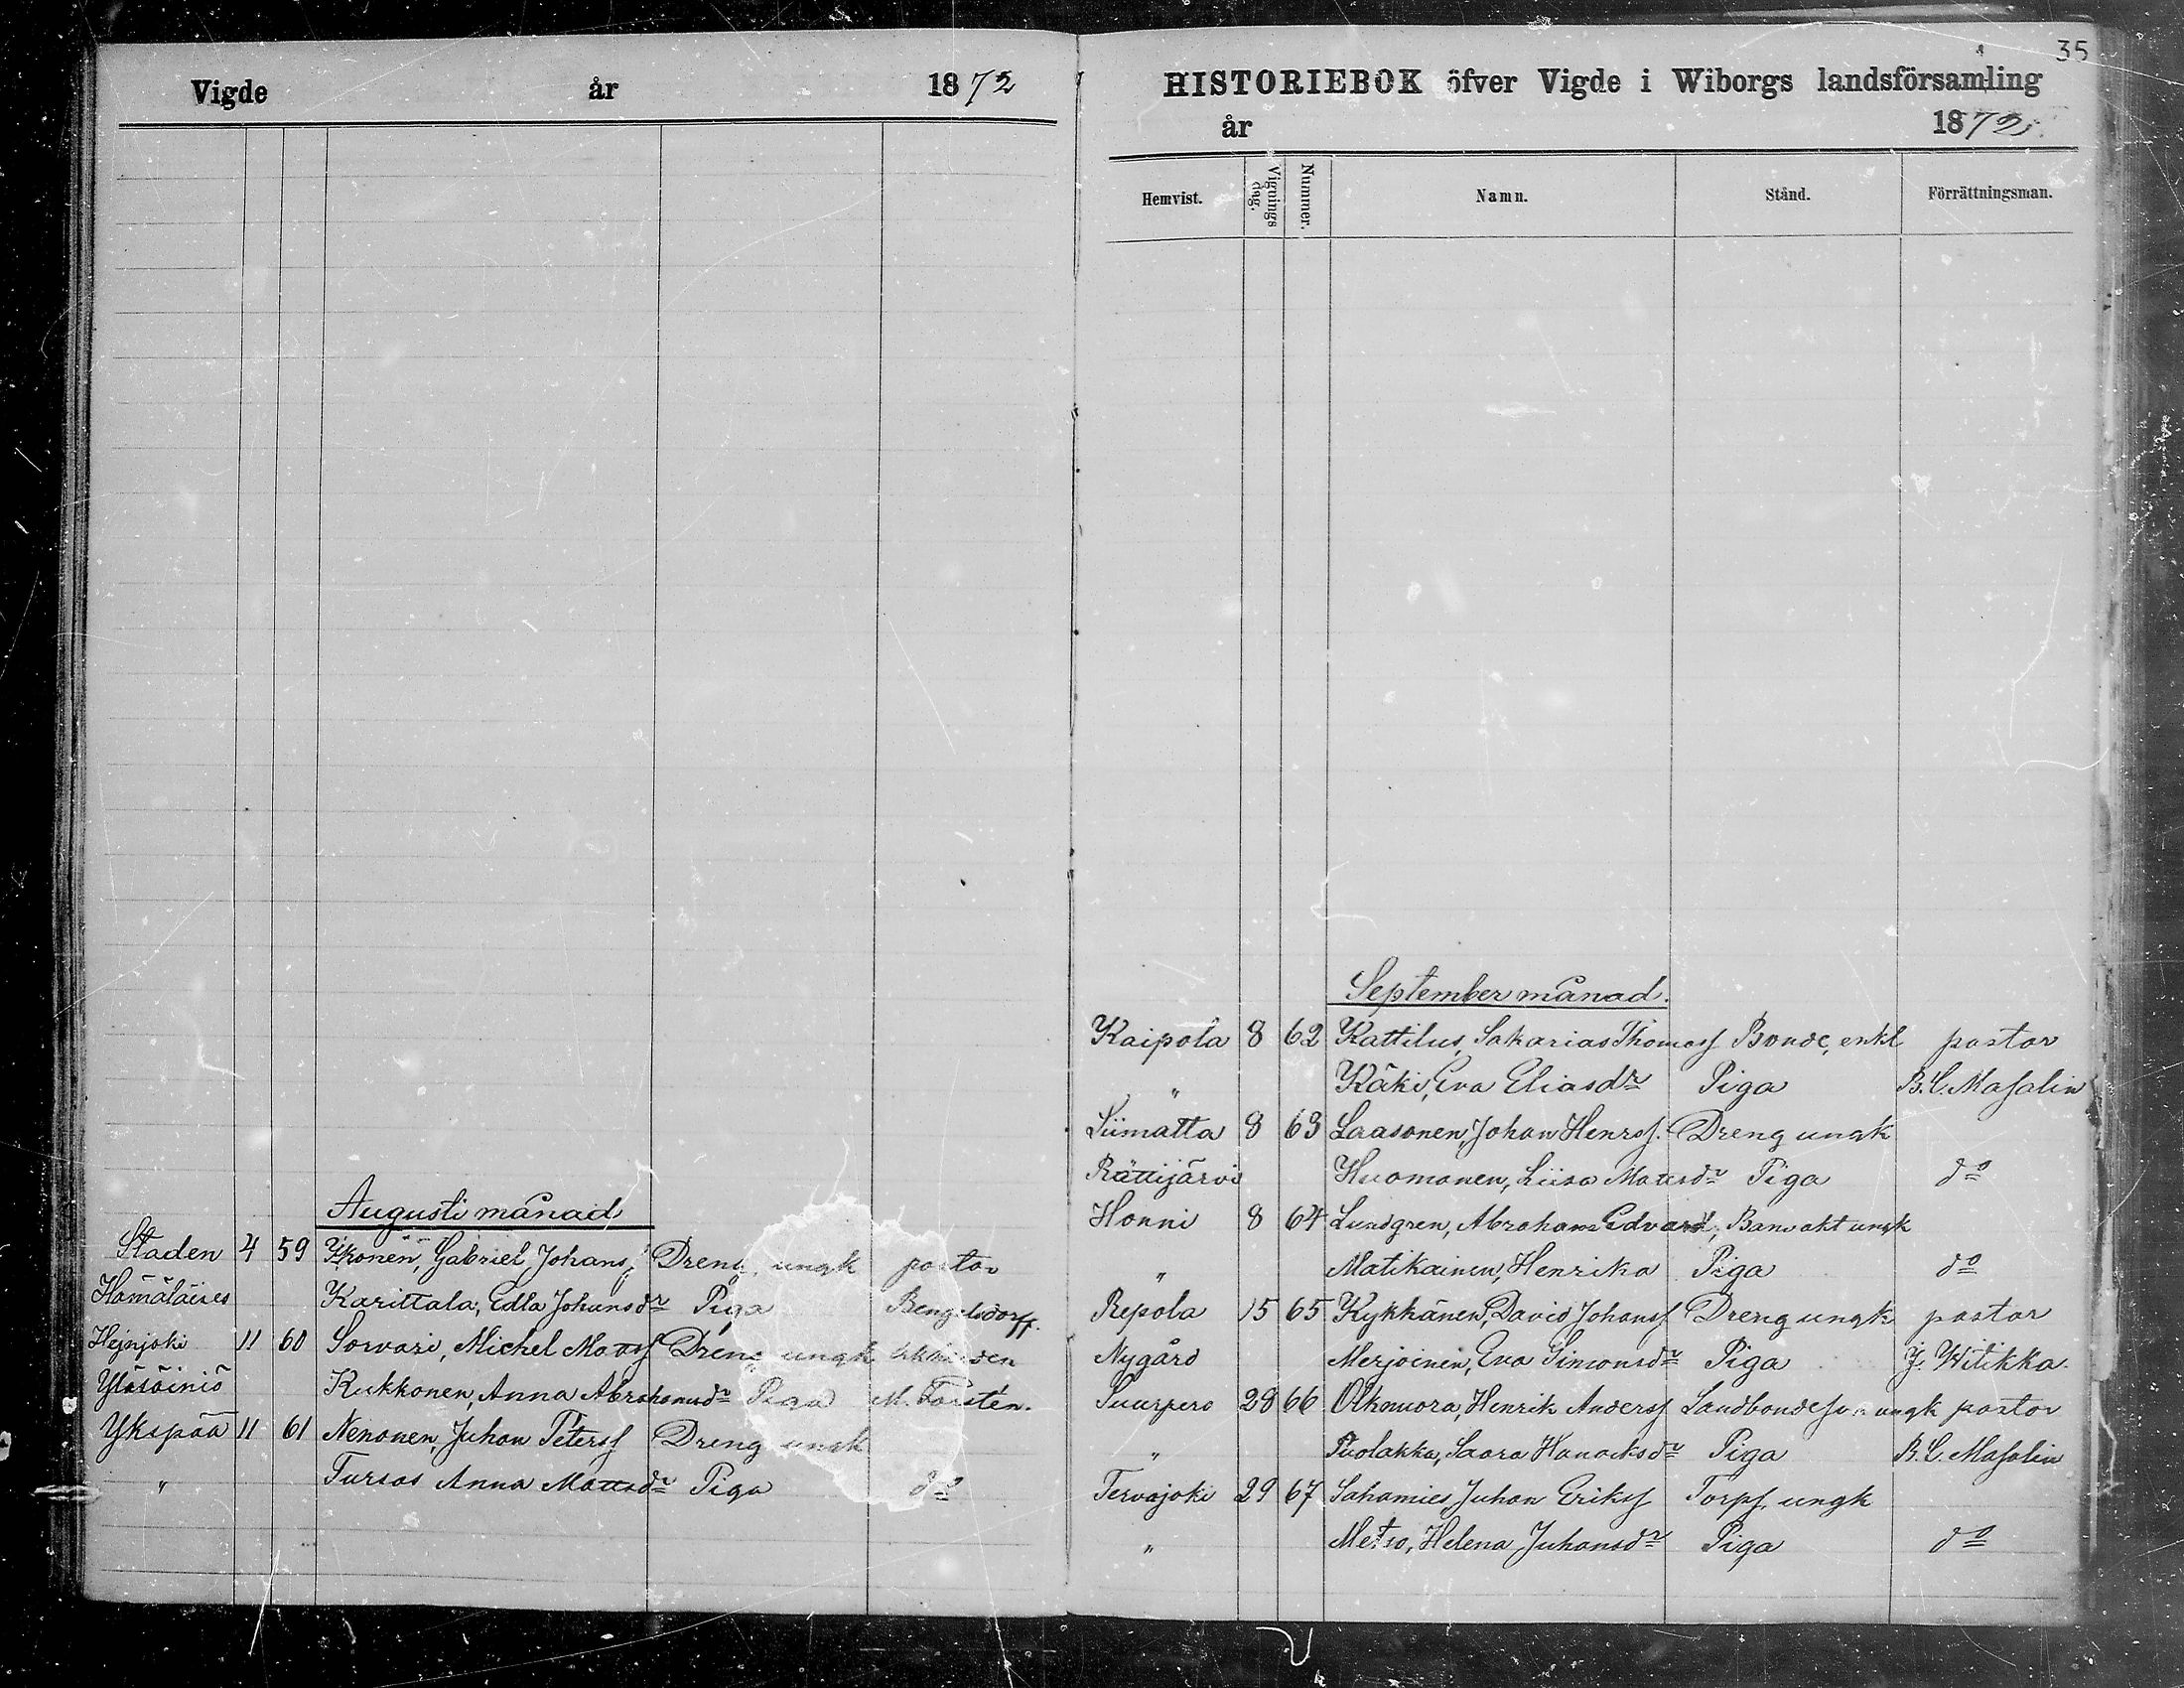 Vigde år 1872
Augusti månad
Staden 4 59 Ykonen, Gabriel Johans Dreng ungk pastor
Hämäläires Karittala, Edla Johansdr Piga Bengelsdorff.
Hejnjoki 11 60 Sorvari, Michel Matsf Dreng ungk
Yläsäiniö Kukkonen, Anna Abrahamsdr Piga M. Forstén.
Ykspää 11 61 Nenonen, Juhan Petersf Dreng ungk
" Tursas Anna Mattsdr Piga do
35
HISTORIEBOK öfver Vigde i Wiborgs landsförsamling
år 1872
Hemvist. Vignings dag. Nummer. Namn. Stånd. Förrättningsman.
September månad.
Kaipola 8 62 Kattilus, Sakarias Thomasf Bonde, enkl pastor
" Käki, Eva Eliasdr Piga B. C. Masalin
Liimatta 8 63 Laasonen, Johan Henrsf. Dreng ungk
Rättijärvi Huomonen, Liisa Mattsdr Piga do
Honni 8 64 Lundgren, Abraham Edvard, Banvakt ungk
" Matikainen, Henrika Piga do
Repola 15 65 Kykkänen, David Johansf Dreng ungk pastor
Nygård Merjoinen, Eva Simonsdr Piga J. Witikka
Suurpero 28 66 Olkonuora, Henrik Andersf Landbondeson ungk pastor
" Puolakka, Saara Hanocksdr Piga B. C. Masalin
Tervajoki 29 67 Sahamies, Juhan Eriksf Torpf. ungk
" Metso, Helena Juhansdr Piga do